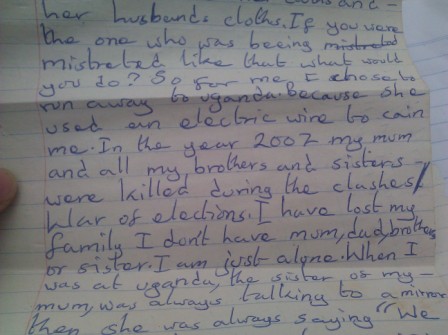 her husbands cloths. If you were
the one who was beeing mistreted
mistreted like that what would
you do? So for me I chose to
run away to uganda. Because she
used an electric wire to cain
me. In the year 2007 my mum
and all my brothers and sisters -
were killed during the clashes/
War of elections. I have lost my
family I don't have mum, dad, brothers
or sister. I am just alone. When I
was at uganda, the sister of my -
mum, was always talking to a mirror
then she was always saying "We